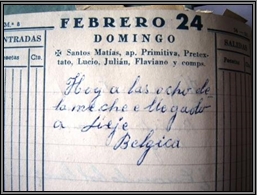 M.ª 8
FEBRERO 24
DOMINGO
✠ Santos Matías, ap. Primitiva, Pretex-
tato, Lucio, Julián, Flaviano y comps.
ENTRADAS
Pesetas Cts.
Hoy a las ocho de
la noche e llegado
a Lieje
Belgica